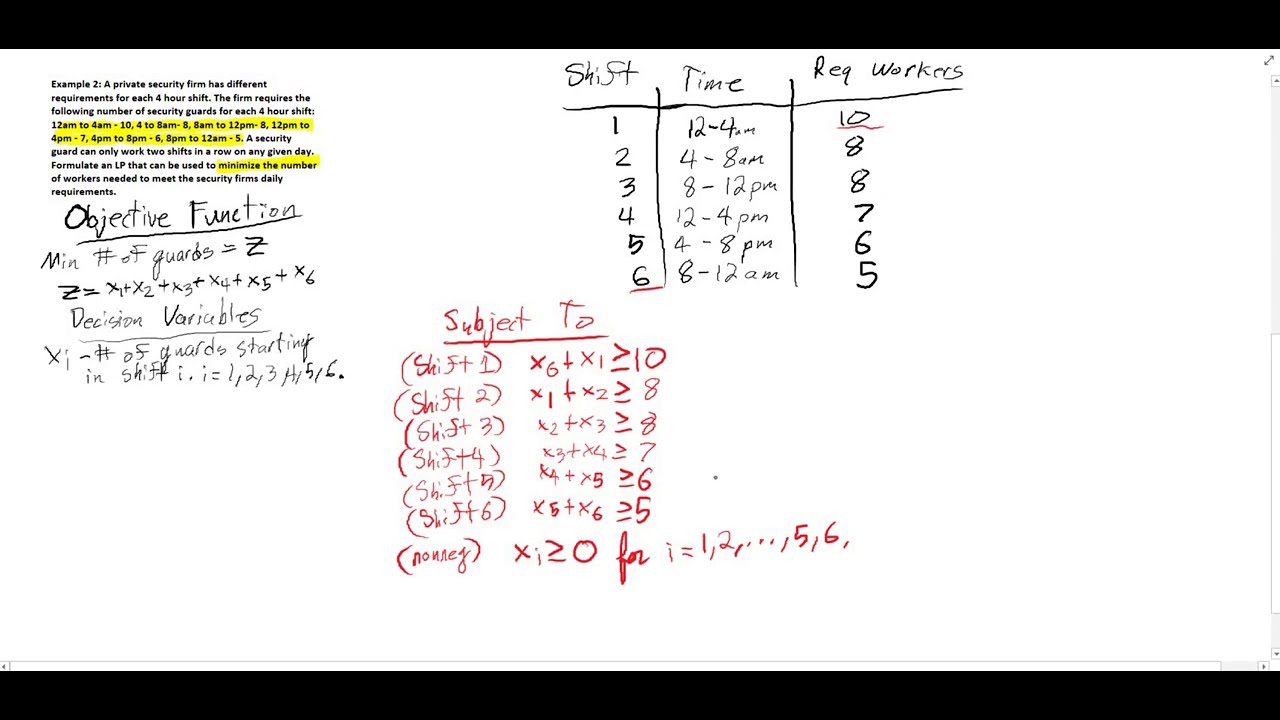 Example 2: A private security firm has different
requirements for each 4 hour shift. The firm requires the
following number of security guards for each 4 hour shift:
12am to 4am - 10, 4 to 8am- 8, 8am to 12pm- 8, 12pm to
4pm - 7, 4pm to 8pm - 6, 8pm to 12am - 5. A security
guard can only work two shifts in a row on any given day.
Formulate an LP that can be used to minimize the number
of workers needed to meet the security firms daily
requirements.
Objective Function
Min # of guards = Z
Z = x₁+x₂+x₃+x₄+x₅+x₆
Decision Variables
xᵢ - # of guards starting
in shift i. i=1,2,3,4,5,6.
Shift Time Req Workers
1 12-4am 10
2 4-8am 8
3 8-12pm 8
4 12-4pm 7
5 4-8pm 6
6 8-12am 5
Subject To
(Shift 1) x₆+x₁≥10
(Shift 2) x₁+x₂≥8
(Shift 3) x₂+x₃≥8
(Shift 4) x₃+x₄≥7
(Shift 5) x₄+x₅≥6
(Shift 6) x₅+x₆≥5
(nonneg) xᵢ≥0 for i=1,2,...,5,6.